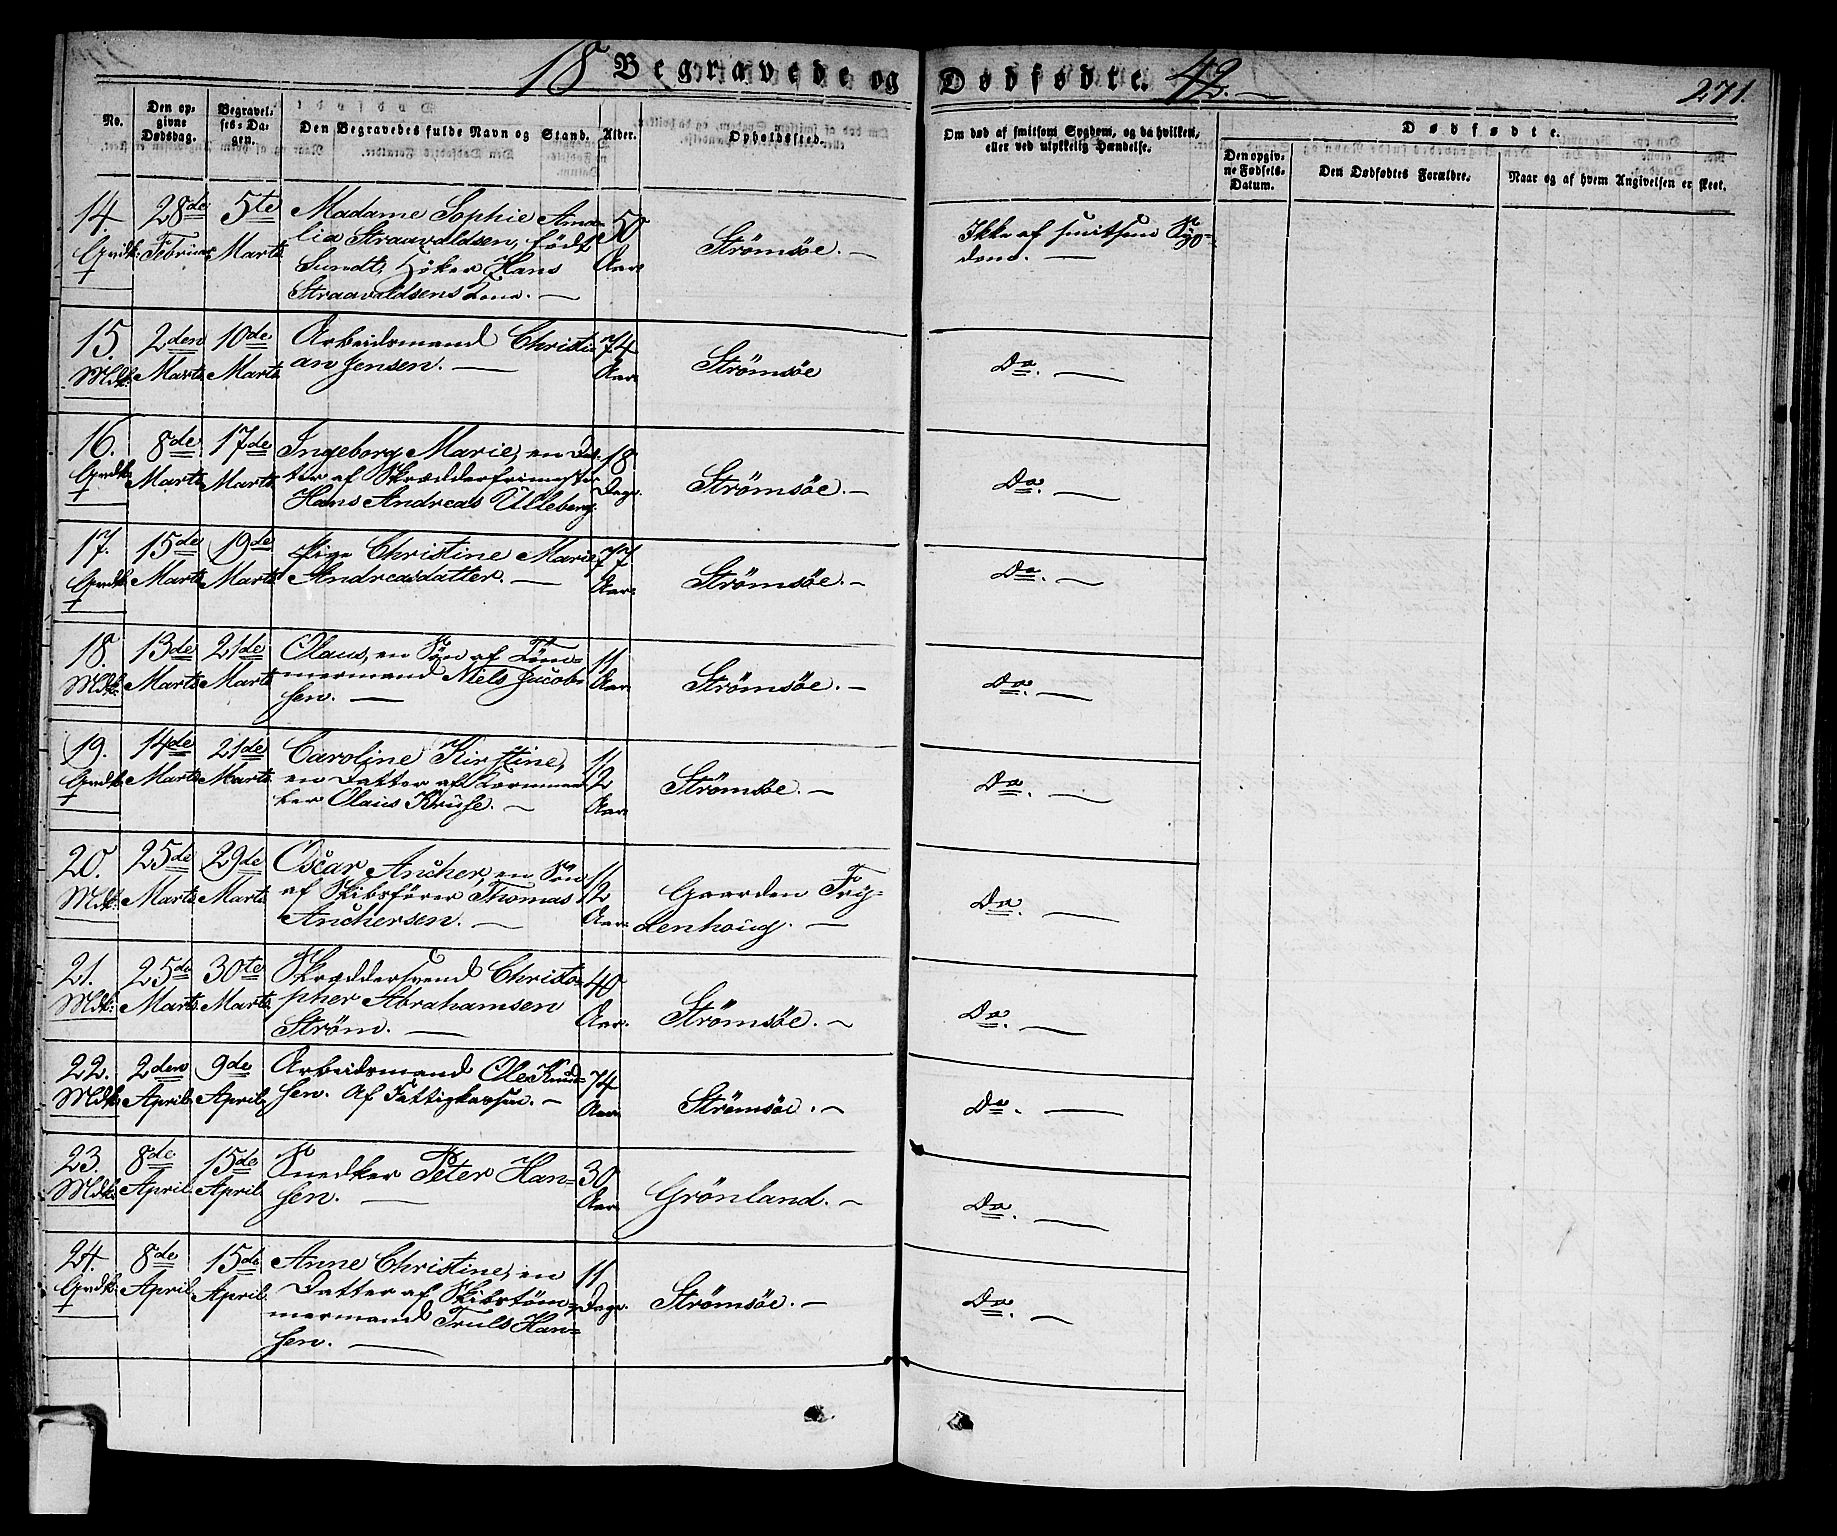 18 Begravede og Dødfødte. 42.
271.
No.
Den op-
givne
Dødsdag.
Begravel-
ses-Da-
gen.
Den Begravedes fulde Navn og Stand.
Alder.
Opholdssted.
Om død af smitsom Sygdom, og da hvilken,
eller ved ulykkelig Hændelse.
Dødfødte.
Den opgiv-
ne Fødsels-
Datum.
Den Dødfødtes Forældre.
Naar og af hvem Angivelsen er skeet.
14. 28de 5te Madame Sophie Ama- 50
Qvdk: Februar Marts lia Straavaldsen, født Aar Strømsøe. Ikke af smitsom Syg-
Sundt, Høker Hans dom.
Straavaldsens Kone.
15. 2den 10de Arbeidsmand Christi- 74
Mdk: Marts Marts an Jensen. Aar Strømsøe Do.
16. 8de 17de Ingeborg Marie, en Dat- 18
Qvdk: Marts Marts ter af Skrædderfrimester Dage. Strømsøe. Do.
Hans Andreas Ulleberg.
17. 15de 19de Pige Christine Marie 77
Qvdk: Marts Marts Andreasdatter. Aar. Strømsøe. Do.
18. 13de 21de Olaus, en Søn af Tøm- 11
Mdk: Marts Marts mermand Niels Jacob- Aar. Strømsøe. Do.
sen.
19. 14de 21de Caroline Kirstine, 1/2
Qvdk: Marts Marts en Datter af Aar. Strømsøe. Do.
ker Olaus Kruse.
20. 25de 29de Oscar Ancher, en Søn 1/2
Mdk: Marts Marts af Skibsfører Thomas Aar. Gaarden Fry- Do.
Anchersen. denhoug.
21. 25de 30te Skræddersvend Christo- 40
Mdk: Marts Marts pher Abrahamsen Aar. Strømsøe. Do.
Strøm.
22. 2den 9de Arbeidsmand Ole Knud- 74
Mdk: April April sen. Af Fattigkassen. Aar. Strømsøe. Do.
23. 8de 15de Snedker Peter Han- 30
Mdk: April April sen. Aar. Grønland. Do.
24. 8de 15de Anne Christine, en 11
Qvdk: April April. Datter af Skibstøm- Dage. Strømsøe. Do.
mermand Truls Han-
sen.